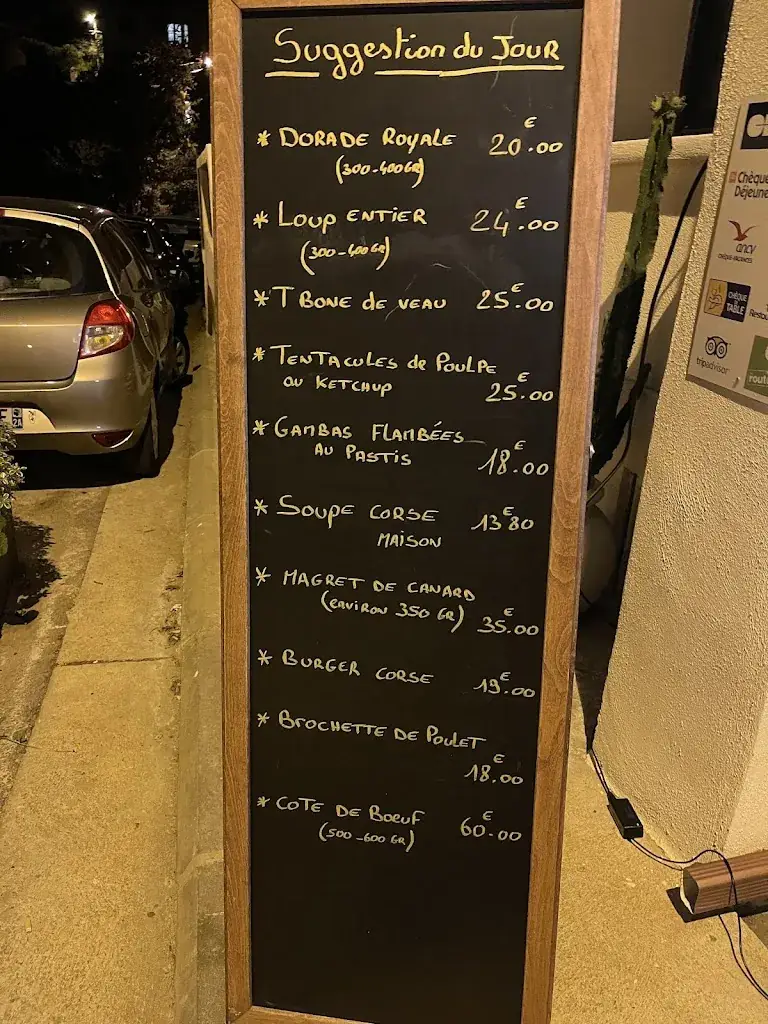 Suggestion du Jour
* Dorade Royale 20.€00
(300-400Gr)
* Loup entier 24.€00
(300-400 Gr)
* T Bone de veau 25.€00
* Tentacules de Poulpe
au Ketchup 25.€00
* Gambas Flambées
au Pastis 18.€00
* Soupe Corse 13€80
Maison
* Magret de canard
(environ 350 Gr) 35.€00
* Burger Corse 19.€00
* Brochette de Poulet
18.€00
* Cote de Boeuf 60.€00
(500-600 Gr)
Chèque
Déjeune
ancv
CHÈQUE-VACANCES
CHÈQUE
de
TABLE
Resto
tripadvisor
rout
2A